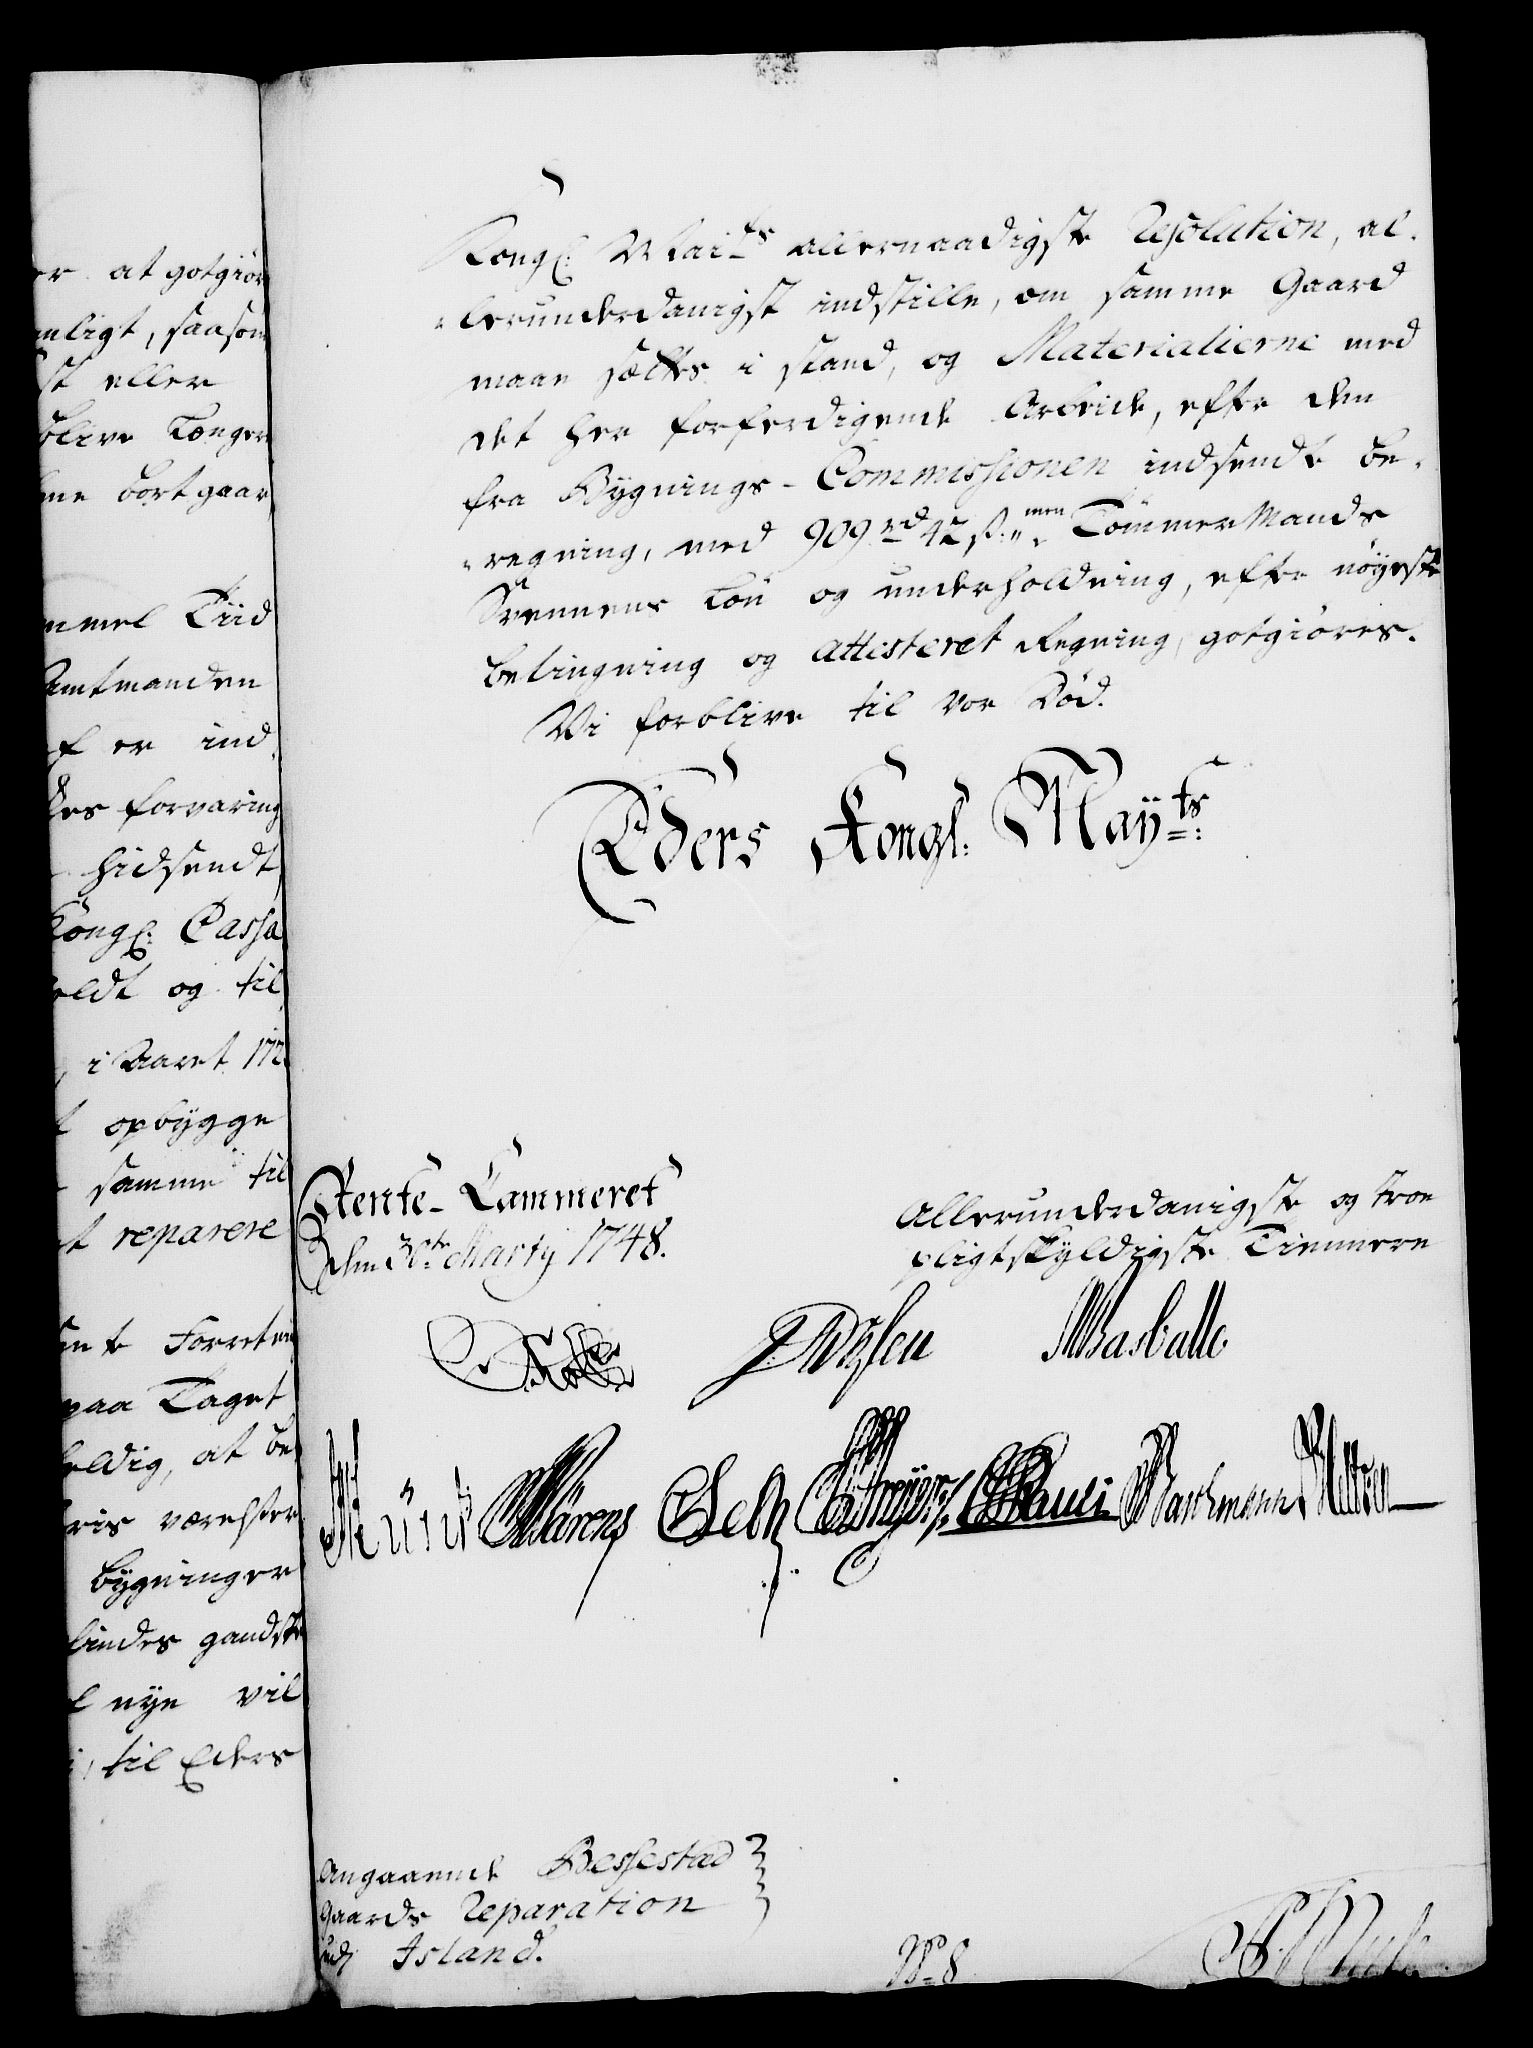 er at gotgiør
mligt, saasom
st eller
blive længer
me bortgaar
mmel Tiid
Amtmanden
f er ind
kes forvaring
hidsendt
Kongl: Cassa
eldt og til
i Aaret 172
t opbygge
samme til
t reparere
Forretni
paa Taget
eldig, at be
ris værelser
bygninger
lindes gandske
nye vil
til Eders
Kongl: Mai:ts allernaadigste Resolution, al-
lerunderdanigst indstille, om samme Gaard
maae sættes i stand, og Materialierne med
det her forferdigende Arbeide, efter den
fra Bygnings-Commissionen indsendte be-
regning, med 909 rd 42 ß: men Tømmer Mands
Svennens Løn og underholdning, efter nøyeste
betingning og attesteret Regning, gotgiøres.
Vi forblive til vor Død.
Eders Kongl: May:ts
Rente-Cammeret
den 30te Marty 1748.
Allerunderdanigste og troe
pligtskyldigste Tiennere
J. Wesen Basballe
Münt Wärens Selby Pauli Bachmann
Angaaende Bessestad
Gaards Reparation
udj Island.
No 8